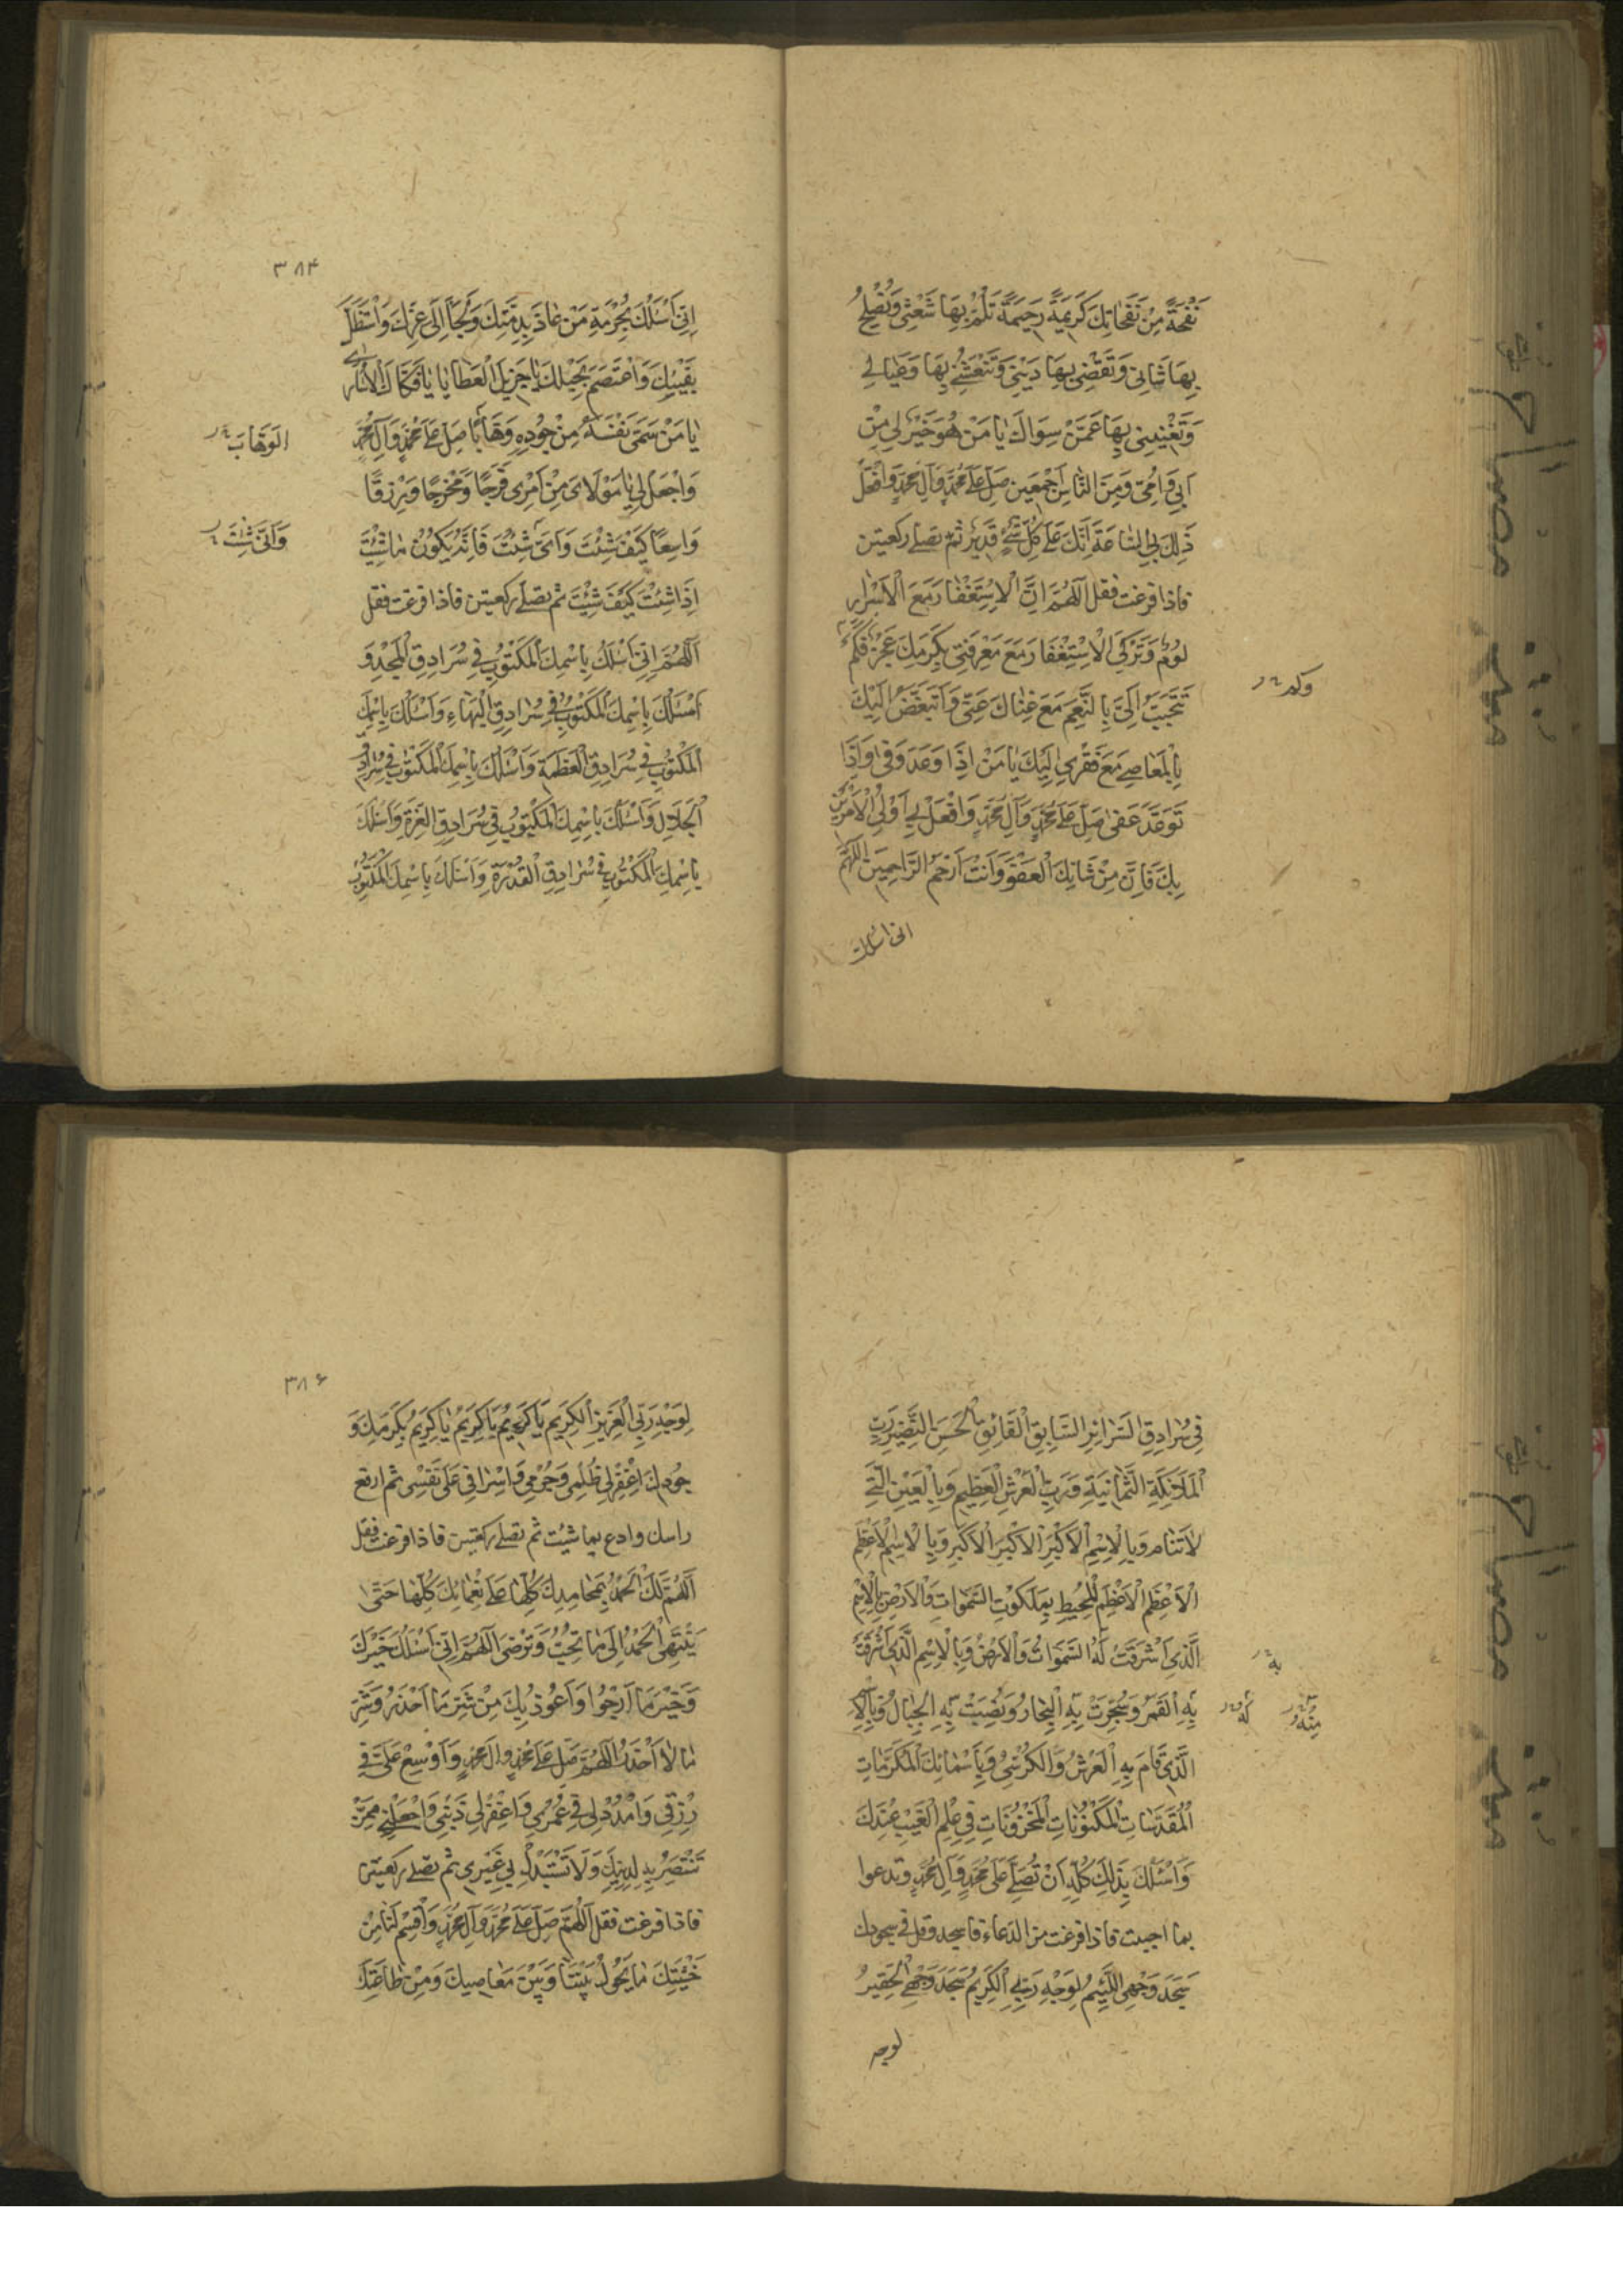 نَفْحَةً مِنْ نَفَحَاتِكَ كَرِيمَةً رَحِيمَةً تَلُمُّ بِهَا شَعْثِي وَتُصْلِحُ
بِهَا شَانِي وَتَقْضِي بِهَا دَيْنِي وَتَنْعَشُنِي بِهَا وَعِيَالِي
وَتُغْنِيَنِي بِهَا عَمَّنْ سِوَاكَ يَا مَنْ هُوَ خَيْرٌ لِي مِنْ
اَبِي وَاُمِّي وَمِنَ النَّاسِ اَجْمَعِينَ صَلِّ عَلَى مُحَمَّدٍ وَآلِ مُحَمَّدٍ وَافْعَلْ
ذَلِكَ بِي السَّاعَةَ اِنَّكَ عَلَى كُلِّ شَيْءٍ قَدِيرٌ ثم تصلى ركعتين
فاذا فرغت فقل اَللّٰهُمَّ اِنَّ الْاِسْتِغْفَارَ مَعَ الْاِصْرَارِ
لُومٌ وَتَرْكِيَ الْاِسْتِغْفَارَ مَعَ مَعْرِفَتِي بِكَرَمِكَ عَجْزٌ فَكَمْ
وكم
تَتَحَبَّبُ اِلَيَّ بِالنِّعَمِ مَعَ غِنَاكَ عَنِّي وَاَتَبَغَّضُ اِلَيْكَ
بِالْمَعَاصِي مَعَ فَقْرِي اِلَيْكَ يَا مَنْ اِذَا وَعَدَ وَفَى وَاِذَا
تَوَعَّدَ عَفَى صَلِّ عَلَى مُحَمَّدٍ وَآلِ مُحَمَّدٍ وَافْعَلْ بِي اَوْلَى الْاَمْرَيْنِ
بِكَ فَاِنَّ مِنْ شَانِكَ الْعَفْوَ وَاَنْتَ اَرْحَمُ الرَّاحِمِينَ اَللّٰهُمَّ
انى اسئلك
٣٨۴
اِنِّي اَسْئَلُكَ بِحُرْمَةِ مَنْ عَاذَ بِذِمَّتِكَ وَلَجَأَ اِلَى عِزِّكَ وَاسْتَظَلَّ
بِفَيْئِكَ وَاعْتَصَمَ بِحَبْلِكَ يَا جَزِيلَ الْعَطَايَا يَا فَكَّاكَ الْاُسَارَى
يَا مَنْ سَمَّى نَفْسَهُ مِنْ جُودِهِ وَهَّابًا صَلِّ عَلَى مُحَمَّدٍ وَآلِ مُحَمَّدٍ
الوَهَّابَ
وَاجْعَلْ لِي يَا مَوْلَايَ مِنْ اَمْرِي فَرَجًا وَمَخْرَجًا وَرِزْقًا
وَاسِعًا كَيْفَ شِئْتَ وَاَنَّى شِئْتَ فَاِنَّهُ يَكُونُ مَا شِئْتَ
وَاَنَّى شِئْتَ
اِذَا شِئْتَ كَيْفَ شِئْتَ ثم تصلى ركعتين فاذا فرغت فقل
اَللّٰهُمَّ اِنِّي اَسْئَلُكَ بِاسْمِكَ الْمَكْتُوبِ فِي سُرَادِقِ الْمَجْدِ وَ
اَسْئَلُكَ بِاسْمِكَ الْمَكْتُوبِ فِي سُرَادِقِ الْبَهَاءِ وَاَسْئَلُكَ بِاسْمِكَ
الْمَكْتُوبِ فِي سُرَادِقِ الْعَظَمَةِ وَاَسْئَلُكَ بِاسْمِكَ الْمَكْتُوبِ فِي سُرَادِقِ
الْجَلَالِ وَاَسْئَلُكَ بِاسْمِكَ الْمَكْتُوبِ فِي سُرَادِقِ الْعِزَّةِ وَاَسْئَلُكَ
بِاسْمِكَ الْمَكْتُوبِ فِي سُرَادِقِ الْقُدْرَةِ وَاَسْئَلُكَ بِاسْمِكَ الْمَكْتُوبِ
فِي سُرَادِقِ السَّرَائِرِ السَّابِقِ الْفَائِقِ الْحَسَنِ النَّضِيرِ رَبِّ
الْمَلَائِكَةِ الثَّمَانِيَةِ وَرَبِّ الْعَرْشِ الْعَظِيمِ وَبِالْعَيْنِ الَّتِي
لَا تَنَامُ وَبِالْاِسْمِ الْاَكْبَرِ الْاَكْبَرِ الْاَكْبَرِ وَبِالْاِسْمِ الْاَعْظَمِ
الْاَعْظَمِ الْاَعْظَمِ الْمُحِيطِ بِمَلَكُوتِ السَّمٰوَاتِ وَالْاَرْضِ بِالْاِسْمِ
الَّذِي اَشْرَقَتْ لَهُ السَّمٰوَاتُ وَالْاَرْضُ وَبِالْاِسْمِ الَّذِي اَشْرَقَتْ
بِهِ
بِهِ الْقَمَرُ وَسُجِّرَتْ بِهِ الْبِحَارُ وَنُصِبَتْ بِهِ الْجِبَالُ وَبِالْاِسْمِ
لَهُ
مِنْهُ
الَّذِي قَامَ بِهِ الْعَرْشُ وَالْكُرْسِيُّ وَبِاَسْمَائِكَ الْمُكَرَّمَاتِ
الْمُقَدَّسَاتِ الْمَكْنُونَاتِ الْمَخْزُونَاتِ فِي عِلْمِ الْغَيْبِ عِنْدَكَ
وَاَسْئَلُكَ بِذَلِكَ كُلِّهِ اَنْ تُصَلِّيَ عَلَى مُحَمَّدٍ وَآلِ مُحَمَّدٍ وتدعوا
بما احببت فاذا فرغت من الدعاء فاسجد وقل فى سجودك
سَجَدَ وَجْهِيَ اللَّئِيمُ لِوَجْهِ رَبِّيَ الْكَرِيمِ سَجَدَ وَجْهِيَ الْحَقِيرُ
لوجه
٣٨۶
لِوَجْهِ رَبِّيَ الْعَزِيزِ الْكَرِيمِ يَا كَرِيمُ يَا كَرِيمُ يَا كَرِيمُ بِكَرَمِكَ وَ
جُودِكَ اغْفِرْ لِي ظُلْمِي وَجُرْمِي وَاِسْرَافِي عَلَى نَفْسِي ثم ارفع
راسك وادع بما شئت ثم تصلى ركعتين فاذا فرغت فقل
اَللّٰهُمَّ لَكَ الْحَمْدُ بِمَحَامِدِكَ كُلِّهَا عَلَى نَعْمَائِكَ كُلِّهَا حَتَّى
يَنْتَهِيَ الْحَمْدُ اِلَى مَا تُحِبُّ وَتَرْضَى اَللّٰهُمَّ اِنِّي اَسْئَلُكَ خَيْرَكَ
وَخَيْرَ مَا اَرْجُوا وَاَعُوذُ بِكَ مِنْ شَرِّ مَا اَحْذَرُ وَشَرِّ
مَا لَا اَحْذَرُ اَللّٰهُمَّ صَلِّ عَلَى مُحَمَّدٍ وَآلِ مُحَمَّدٍ وَاَوْسِعْ عَلَيَّ فِي
رِزْقِي وَامْدُدْ لِي فِي عُمْرِي وَاغْفِرْ لِي ذَنْبِي وَاجْعَلْنِي مِمَّنْ
تَنْتَصِرُ بِهِ لِدِينِكَ وَلَا تَسْتَبْدِلْ بِي غَيْرِي ثم تصلى ركعتين
فاذا فرغت فقل اَللّٰهُمَّ صَلِّ عَلَى مُحَمَّدٍ وَآلِ مُحَمَّدٍ وَاقْسِمْ لَنَا مِنْ
خَشْيَتِكَ مَا يَحُولُ بَيْنَنَا وَبَيْنَ مَعَاصِيكَ وَمِنْ طَاعَتِكَ